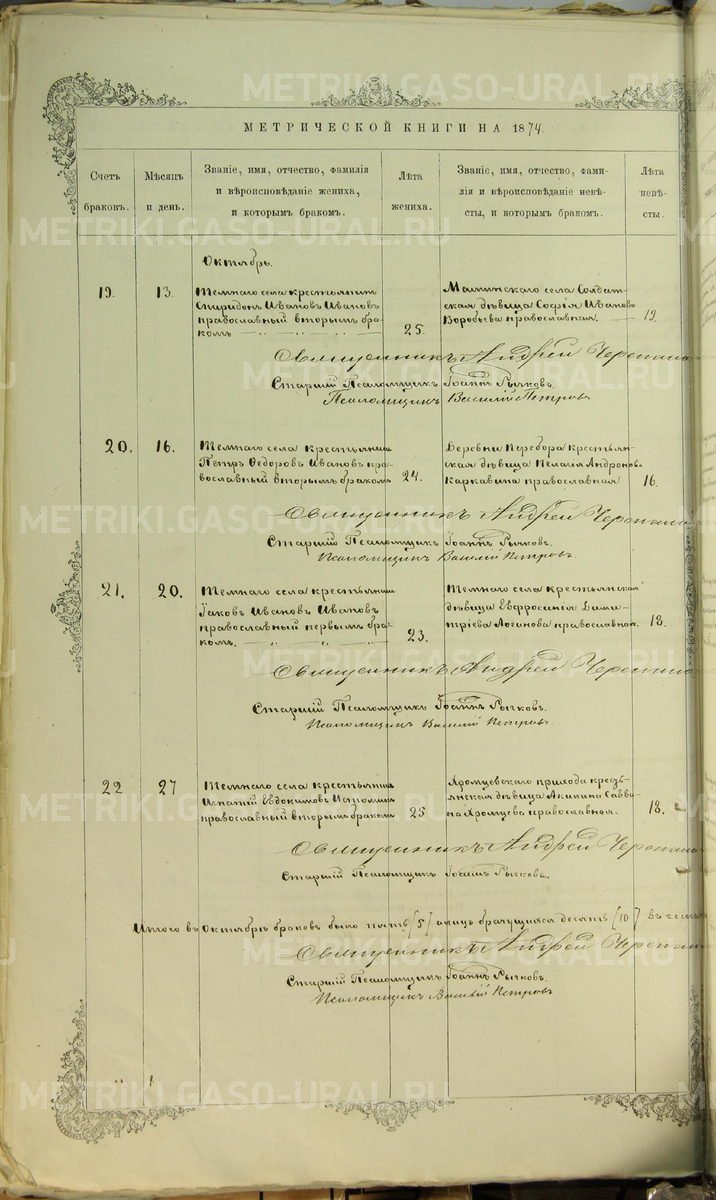 METRIKI.GASO-URAL.RU
МЕТРИЧЕСКОЙ КНИГИ НА 1874.
Счетъ браковъ.
Мѣсяцъ и день.
Званіе, имя, отчество, фамилія
и вѣроисповѣданіе жениха,
и которымъ бракомъ.
Лѣта жениха.
Званіе, имя, отчество, фами-
лія и вѣроисповѣданіе невѣ-
сты, и которымъ бракомъ.
Лѣта невѣ-
сты.
Октябрь.
19. 13. Темнаго села крестьянинъ
Спиридонъ Ивановъ Ивановъ
православный вторымъ бра-
комъ 25.
села Солдат-
ская дѣвица Софія Иванов
Воробьева православная. 19.
Священникъ Андрей
Старшій Псаломщикъ Іоаннъ Рычковъ.
Псаломщикъ Василій Петровъ
20. 16. Темнаго села крестьянинъ
Петръ Ѳедоровъ Ивановъ пра-
вославный вторымъ бракомъ 24.
Деревни Перебора крестьян-
ская дѣвица Пелагія Андронов
Каркавина православная 16.
Священникъ Андрей
Старшій Псаломщикъ Іоаннъ Рычковъ.
Псаломщикъ Василій Петровъ.
21. 20. Темнаго села крестьянинъ
Іаковъ Ивановъ Ивановъ
православный первымъ бра-
комъ. 23.
Темнаго села крестьянская
дѣвица Евфросинія Дими-
тріева Логинова православная. 18.
Священникъ Андрей
Старшій Псаломщикъ Іоаннъ Рычковъ.
Псаломщикъ Василій Петровъ.
22 27 Темнаго села крестьянинъ
Игнатій Евдокимовъ
православный вторымъ бракомъ 25
Яромцевскаго прихода кресть-
янская дѣвица Акилина Савви-
на Яромцева православная. 18.
Священникъ Андрей
Старшій Псаломщикъ Іоаннъ Рычковъ.
Итого въ Октябрѣ браковъ было пять [5] а лицъ брачущихся десять [10] въ
Священникъ Андрей
Старшій Псаломщикъ Іоаннъ Рычковъ.
Псаломщикъ Василій Петровъ
METRIKI.GASO-URAL.RU